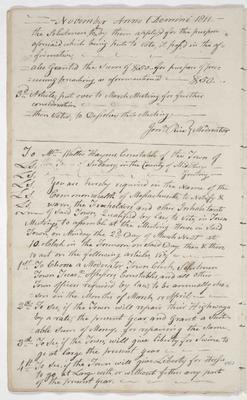 November Anno Domini 1811
the Selectmen they then applied for the purpose
aforesaid which being put to vote, it past in the af-
firmative
also Granted the Sum of $50 for purpose of pro-
curing preaching as aforementioned — $50
3d Article put over to March Meeting for further
consideration
then Voted, to Dissolve this Meeting
Jona Rice Moderator
To Mr Constable of the Town of
Sudbury in the County of Middlesex
Greeting
You are hereby required in the Name of the
Commonwealth of Massachusetts to Notify &
warn the Freeholders and other Inhabitants
of Said Town Qualified by Law to Vote in Town
Meeting to assemble at the Meeting House in Said
Town on Monday the 2d Day of March next at
10 oClock in the Forenoon on Said Day then & there
to act on the following articles (viz)
1st To Choose a Moderator Town Clerk Selectmen
Town Treasr Assessors Constables and all other
Town officers required by Law to be annually cho-
sen in the Months of March or April
2d To See if the Town will repair their Highways
by a rate, the present year and Grant a Suit-
able Sum of Money for repairing the Same
3d To See if the Town will give Liberty for Swine to
go at large the present year
4th To See if the Town will give Liberty for
to go at Large with or without fetters any part
of the present year